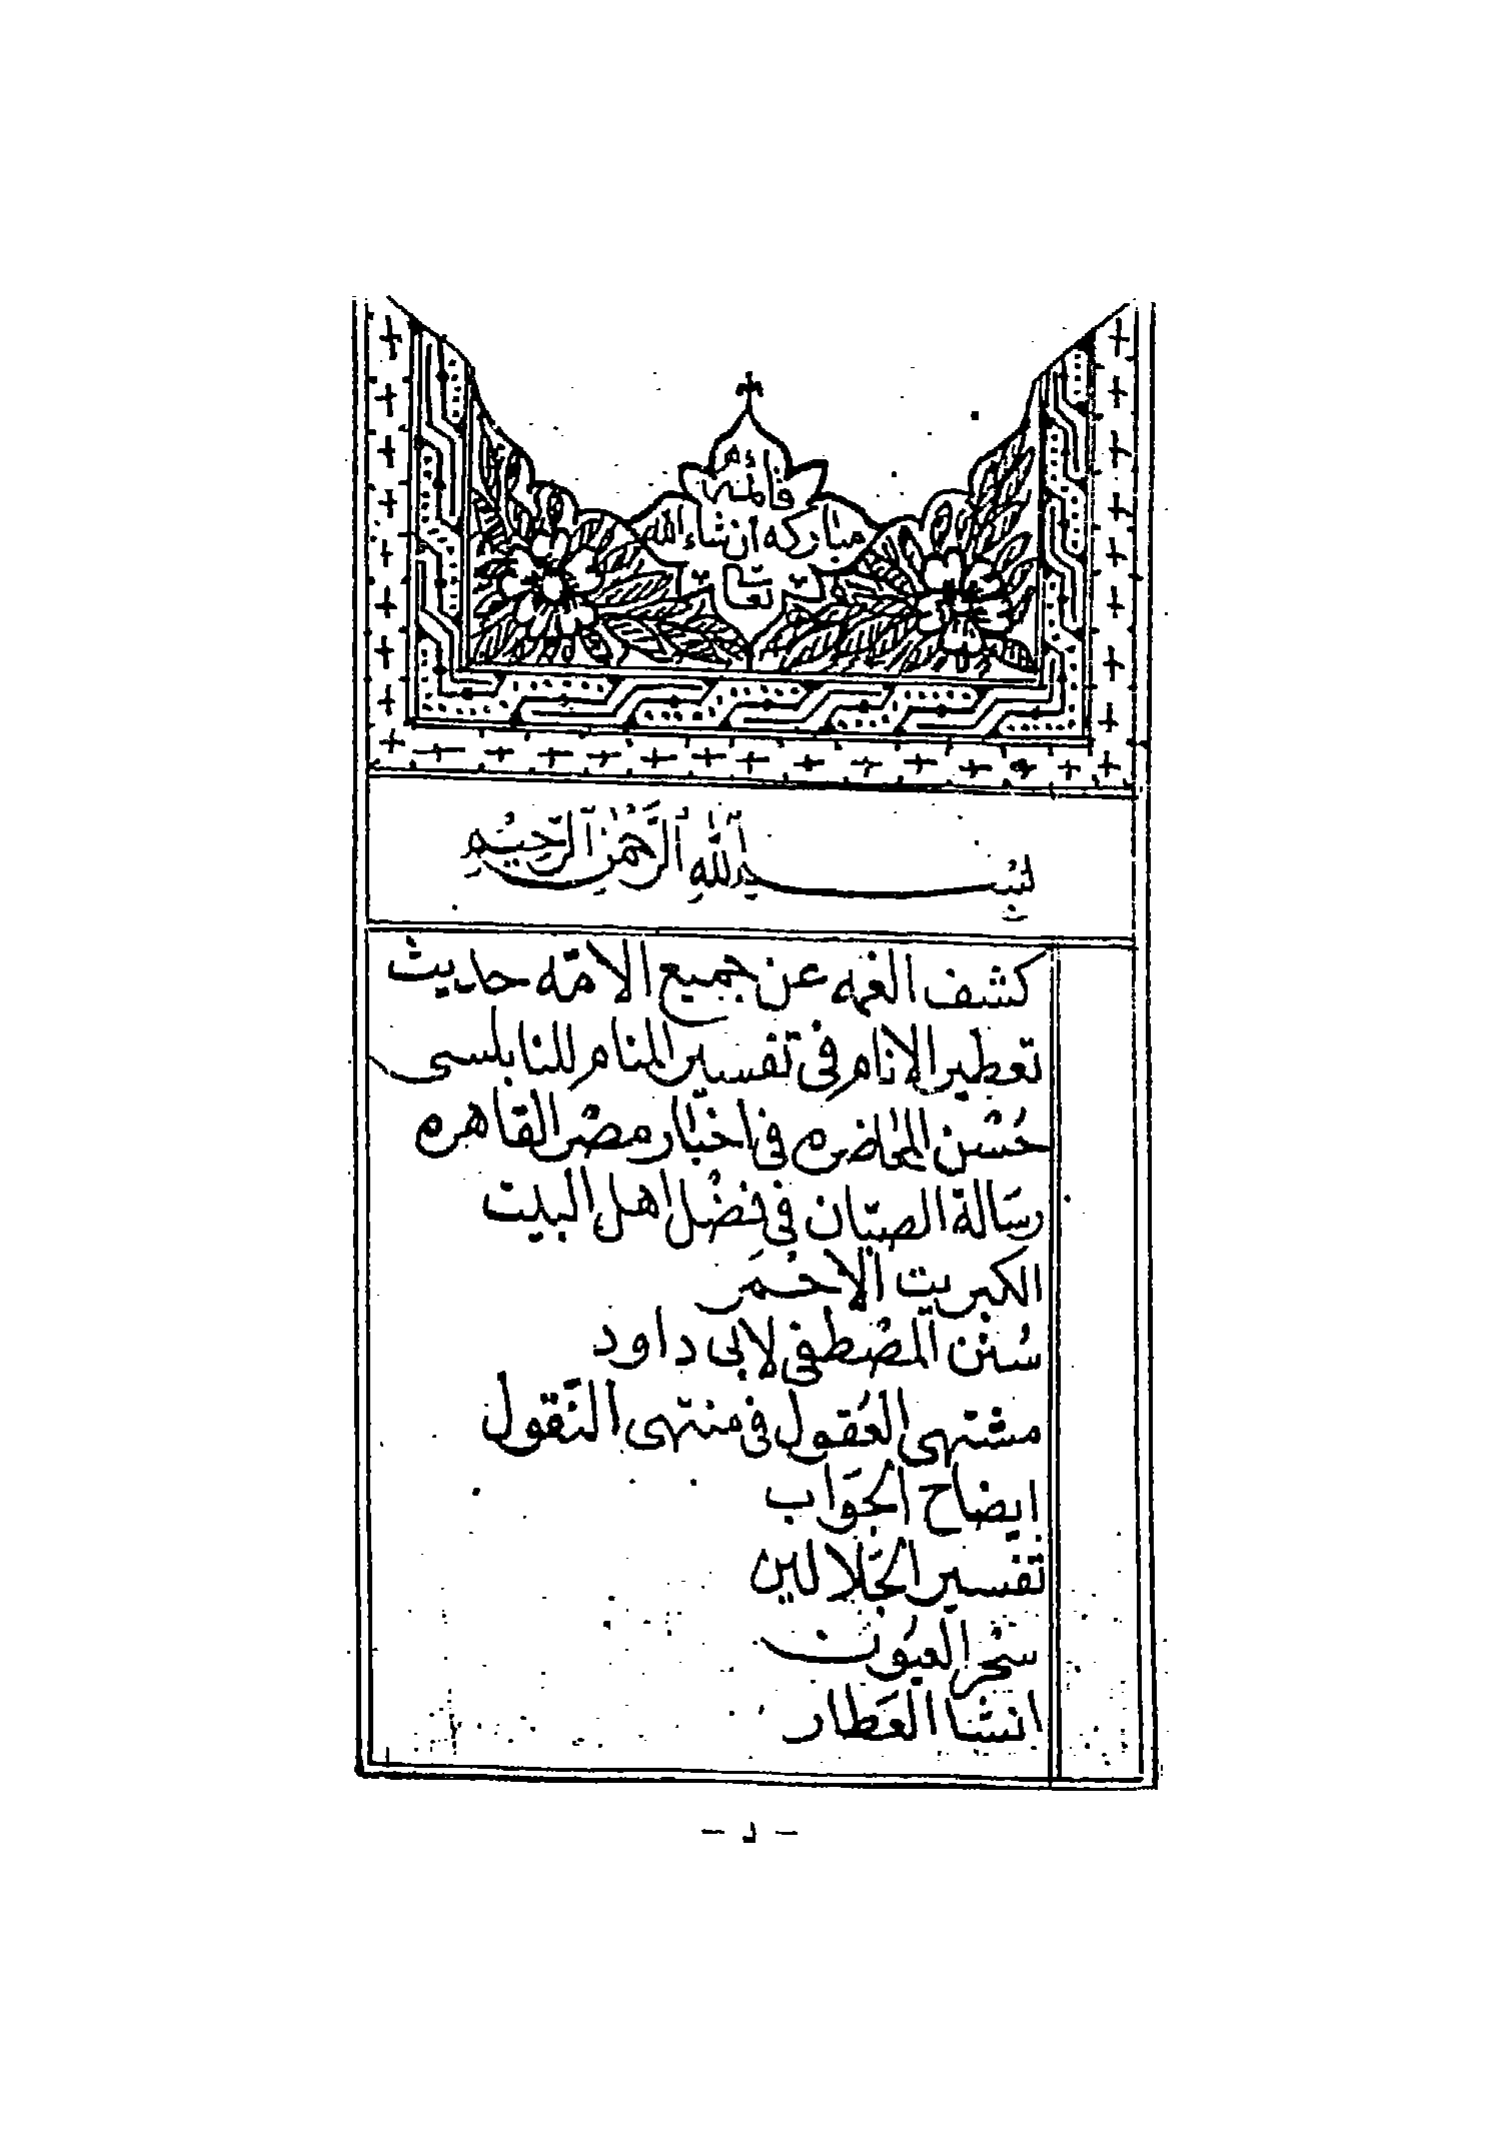 قائمه
مباركه ان شاء الله
تعا
بسم الله الرحمن الرحيم
كشف الغمه عن جميع الامّه حاديث
تعطير الانام فى تفسير المنام للنابلسى
حُسْن المحاضره فى اخبار مصر القاهره
رسَالة الصبّان فى فضْل اهل البيت
الكبريت الاحْمَر
سُنن المصْطفى لابى داود
مشتهى العُقول فى منتهى النقول
ايضاح الجوَاب
تفسير الجَلالين
سحْر العيُون
انشا العَطار